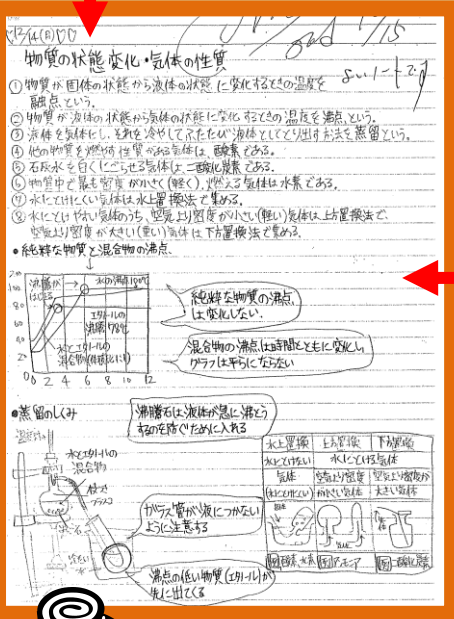 12/14(月)
物質の状態変化・気体の性質
①物質が固体の状態から液体の状態に変化するときの温度を
融点という。
②物質が液体の状態から気体の状態に変化するときの温度を沸点という。
③液体を気体にし、それを冷やしてふたたび液体としてとり出す方法を蒸留という。
④他の物質を燃やす性質がある気体は、酸素である。
⑤石灰水を白くにごらせる気体は、二酸化炭素である。
⑥物質中で最も密度が小さく(軽く)、燃える気体は水素である。
⑦水にとけにくい気体は水上置換法で集める。
⑧水にとけやすい気体のうち、空気より密度が小さい(軽い)気体は上方置換法で、
空気より密度が大きい(重い)気体は下方置換法で集める。
●純粋な物質と混合物の沸点
沸騰が
はじまる
水の沸点100℃
エタノールの
沸点78℃
水とエタノールの
混合物
100
80
60
40
20
0 2 4 6 8 10 12
純粋な物質の沸点
は変化しない。
混合物の沸点は時間とともに変化し、
グラフは平らにならない
●蒸留のしくみ
沸騰石は、液体が急に沸とう
するのを防ぐために入れる
水とエタノールの
混合物
枝つき
フラスコ
ガラス管が液につかない
ように注意する
沸点の低い物質(エタノール)が
先に出てくる
水上置換 上方置換 下方置換
水にとけない 水にとける気体
気体
(水にとけにくい)
空気より密度
が小さい気体
空気より密度が
大きい気体
図酸素、水素 図アンモニア 図二酸化炭素